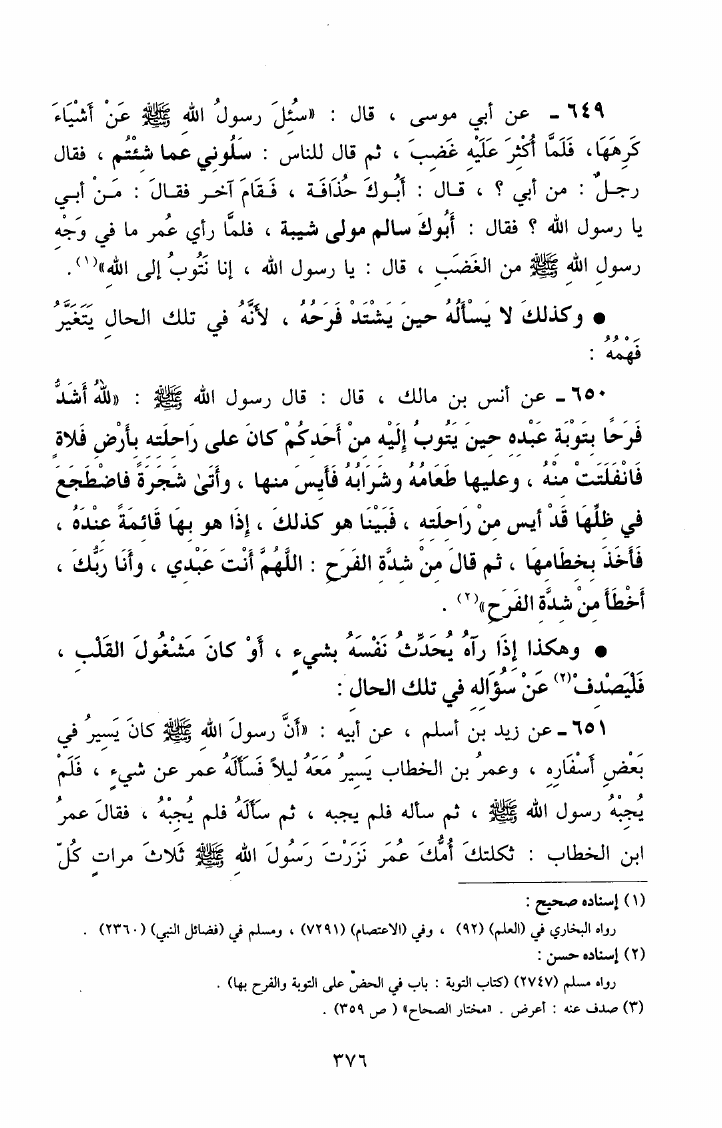 ٦٤٩ ـ عن أبي موسى ، قال : «سُئِلَ رسولُ اللهِ ﷺ عَنْ أَشْيَاءَ
كَرِهَهَا، فَلَمَّا أُكْثِرَ عَلَيْهِ غَضِبَ ، ثم قال للناس : سَلُوني عما شئْتُم ، فقال
رجـلٌ : من أبي ؟ ، قـال : أَبُـوكَ حُذَافَـة ، فَـقَامَ آخـر فقـالَ : مَـنْ أبـي
يا رسول الله ؟ فقال : أَبُوكَ سالم مولى شيبة ، فلمَّا رأي عُمر ما في وَجْهِ
رسولِ اللهِ ﷺ من الغَضَبِ ، قال : يا رسول الله ، إنا نَتُوبُ إلى اللهِ»(١).
● وكذلكَ لا يَسْأَلُهُ حينَ يَشْتَدْ فَرَحُهُ ، لأَنَّهُ في تلك الحالِ يَتَغَيَّرُ
فَهْمُهُ :
٦٥٠ ـ عن أنس بن مالك ، قال : قال رسول الله ﷺ : «للهُ أَشَدُّ
فَرَحًا بِتَوْبَةِ عَبْدِهِ حينَ يَتُوبُ إِلَيْهِ مِنْ أَحَدِكُمْ كانَ على رَاحلَتِهِ بأَرْضِ فَلاةٍ
فَانْفَلَتَتْ مِنْهُ ، وعليها طَعَامُهُ وشَرَابُهُ فَأَيِسَ منها ، وأَتىٰ شَجَرَةً فَاضْطَجَعَ
في ظلِّهَا قَدْ أيس مِنْ رَاحلَتِهِ ، فَبَيْنَا هو كذلكَ ، إِذَا هو بِهَا قَائِمَةً عنْدَهُ ،
فَأَخَذَ بِخِطَامِهَا ، ثم قالَ مِنْ شدَّةِ الفَرَحِ : اللَّهُمَّ أَنْتَ عَبْدي ، وأَنَا رَبُّكَ ،
أَخْطَأَ مِنْ شدَّةِ الفَرَحِ»(٢) .
● وهكذا إِذَا رآهُ يُحَدِّثُ نَفْسَهُ بشيءٍ ، أَوْ كانَ مَشْغُولَ القَلْبِ ،
فَلْيَصْدِفْ(٢) عَنْ سُؤَالِهِ في تلك الحالِ :
٦٥١ ـ عن زيد بن أسلم ، عن أبيه : «أَنَّ رسولَ اللهِ ﷺ كانَ يَسِيرُ في
بَعْضِ أَسْفَارِهِ ، وعمرُ بن الخطاب يَسِيرُ مَعَهُ ليلاً فَسَأَلَهُ عمر عن شيءٍ ، فَلَمْ
يُجِبْهُ رسول الله ﷺ ، ثم سأله فلم يجبه ، ثم سَأَلَهُ فلم يُجِبْهُ ، فقالَ عمرُ
ابن الخطاب : ثكلتكَ أُمُّكَ عُمَر نَزَرْتَ رَسُولَ اللهِ ﷺ ثَلاثَ مراتٍ كُلّ
(١) إسناده صحيح :
رواه البخاري في (العلم) (٩٢) ، وفي (الاعتصام) (٧٢٩١) ، ومسلم في (فضائل النبي) (٢٣٦٠) .
(٢) إسناده حسن :
رواه مسلم (٢٧٤٧) (كتاب التوبة : باب في الحضّ على التوبة والفرح بها) .
(٣) صدف عنه : أعرض . «مختار الصحاح» ( ص ٣٥٩) .
٣٧٦